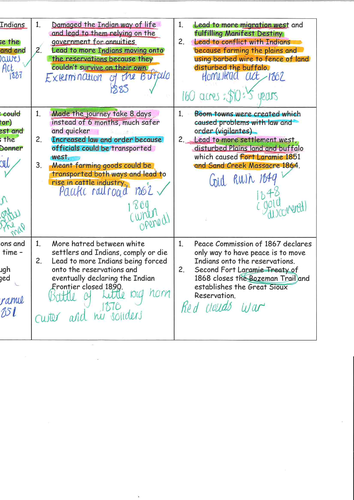 Indians
se the
and end
Dawes
Act
1887
1. Damaged the Indian way of life
and lead to them relying on the
government for annuities.
2. Lead to more Indians moving onto
the reservations because they
couldn't survive on their own.
Extermination of the Buffalo
1883
1. Lead to more migration west and
fulfilling Manifest Destiny
2. Lead to conflict with Indians
because farming the plains and
using barbed wire to fence of land
disturbed the buffalo.
Homestead act 1862
160 acres : $10 : 5 years
could
tar)
est and
s the
Donner
1. Made the journey take 8 days
instead of 6 months, much safer
and quicker
2. Increased law and order because
officials could be transported
west.
3. Meant farming goods could be
transported both ways and lead to
rise in cattle industry.
Pacific railroad 1862
(when
opened)
1. Boom towns were created which
caused problems with law and
order (vigilantes)
2. Lead to more settlement west,
disturbed Plains land and buffalo
which caused Fort Laramie 1851
and Sand Creek Massacre 1864.
Gold Rush 1849
1848
(gold
discovered)
ons and
time –
ugh
ged
Laramie
1851
1. More hatred between white
settlers and Indians, comply or die
2. Lead to more Indians being forced
onto the reservations and
eventually declaring the Indian
Frontier closed 1890.
Battle of Little big horn
1876
custer and his soldiers
1. Peace Commission of 1867 declares
only way to have peace is to move
Indians onto the reservations.
2. Second Fort Laramie Treaty of
1868 closes the Bozeman Trail and
establishes the Great Sioux
Reservation.
Red clouds war